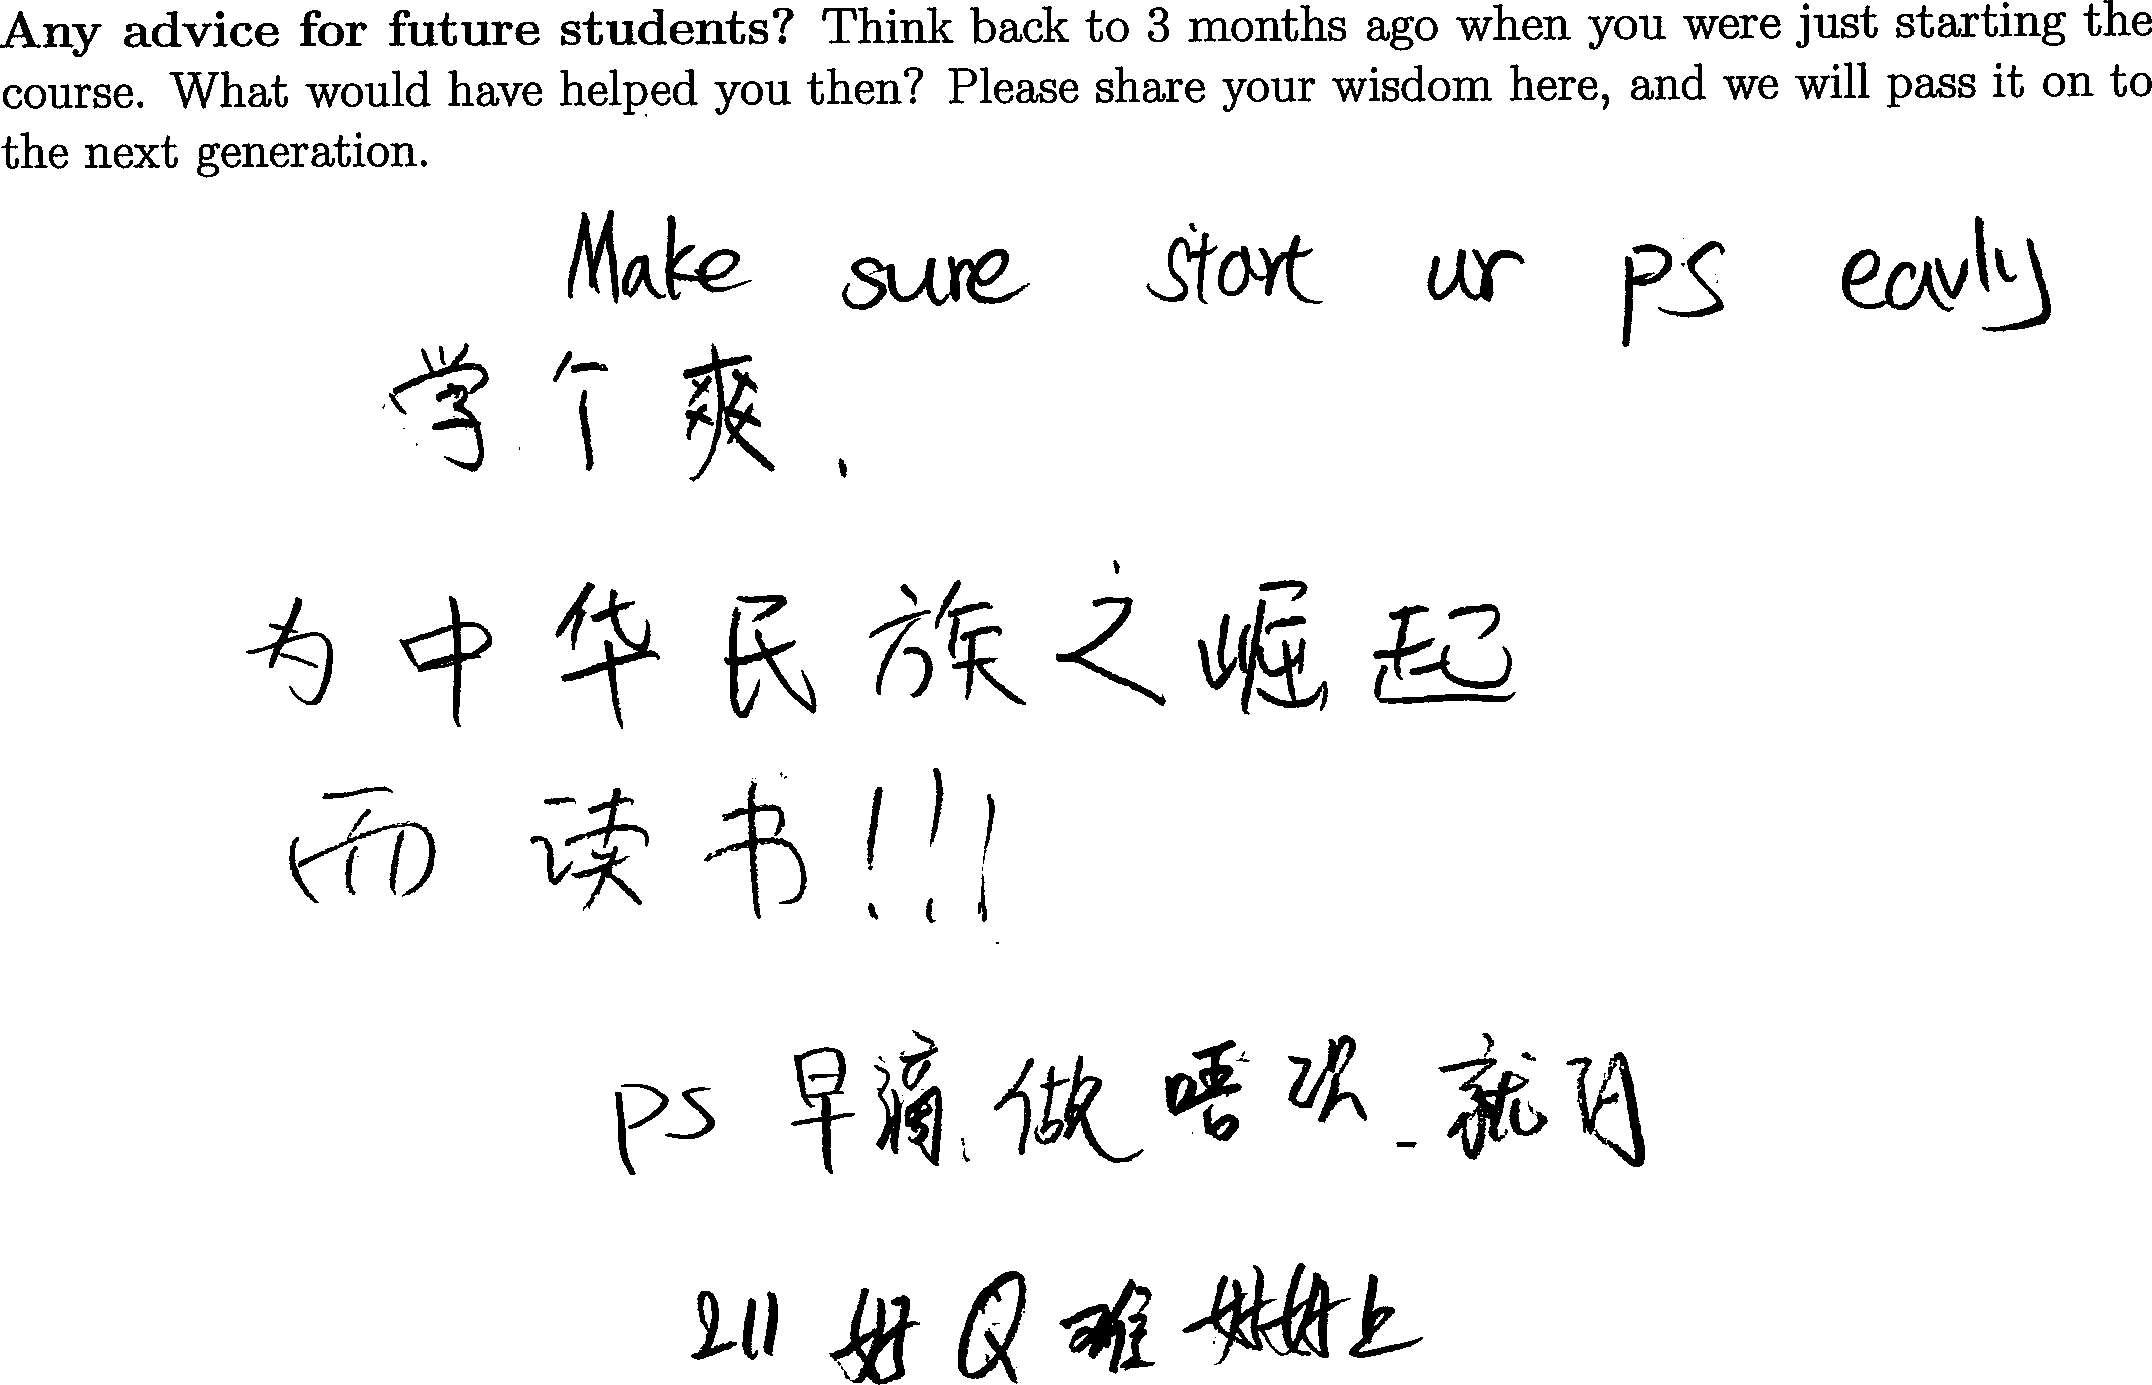 Any advice for future students? Think back to 3 months ago when you were just starting the
course. What would have helped you then? Please share your wisdom here, and we will pass it on to
the next generation.
Make sure start ur ps early
学个爽.
为中华民族之崛起
而读书!!!
ps 早滴做唔
211 好 Q 难